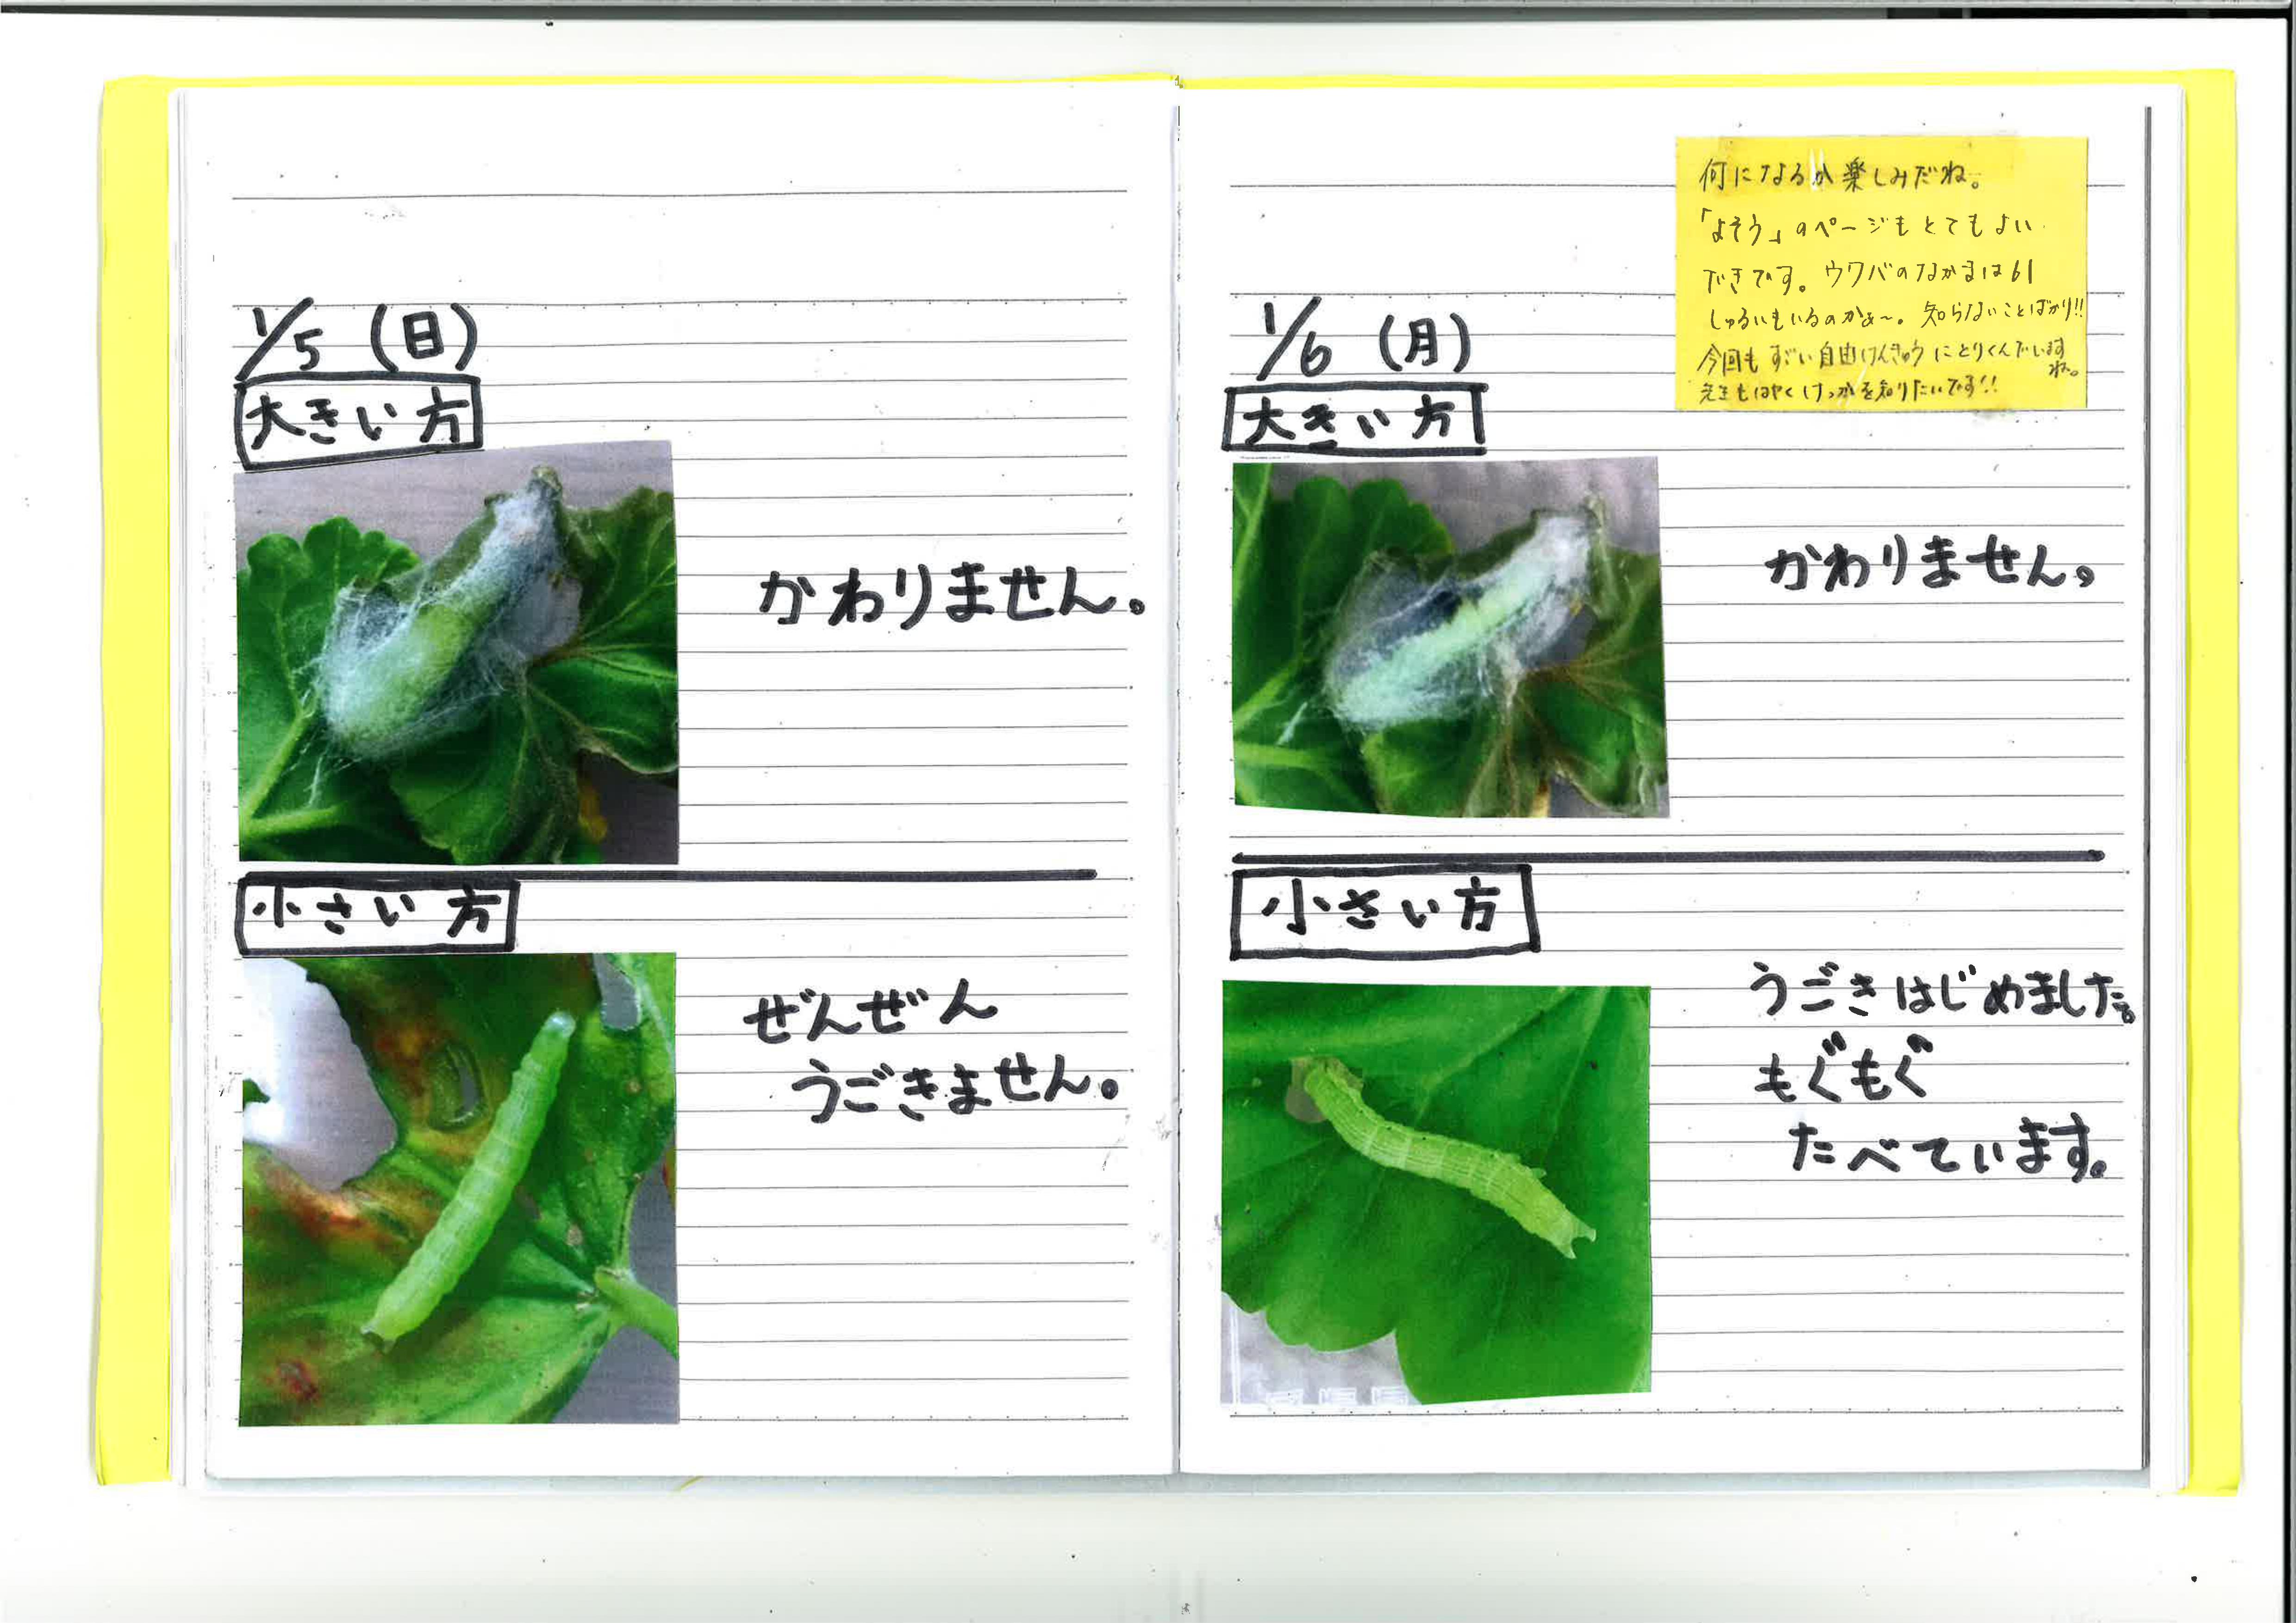 1/5 (日)
大きい方
かわりません。
小さい方
ぜんぜん
うごきません。
何になるか楽しみだね。
「よそう」のページもとてもよい
できです。ウワバのなかまは61
しゅるいもいるのかぁ〜。知らないことばかり!!
今回もすごい自由けんきゅうにとりくんでいます
ね。
先生もはやくけっかを知りたいです!!
1/6 (月)
大きい方
かわりません。
小さい方
うごきはじめました。
もぐもぐ
たべています。